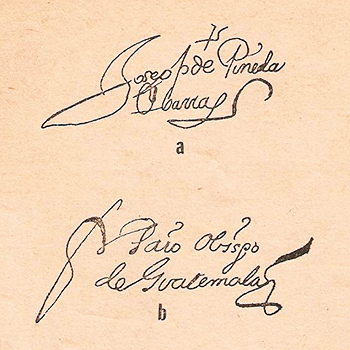 Joseph de Pineda
Ybarra
a
Paio Obispo
de Guatemala
b